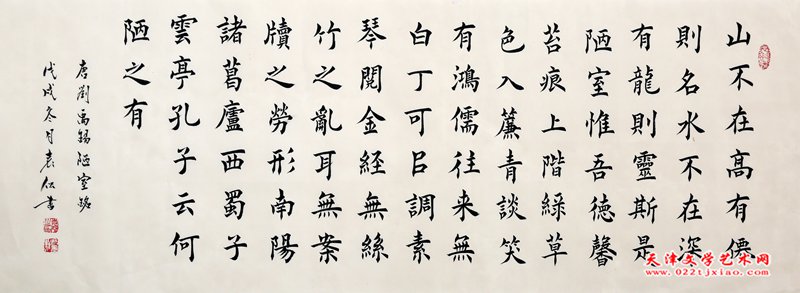 山不在高有僊
則名水不在深
有龍則靈斯是
陋室惟吾德馨
苔痕上階綠草
色入簾青談笑
有鴻儒往来無
白丁可㠯調素
琴閱金經無絲
竹之亂耳無案
牘之勞形南陽
諸葛廬西蜀子
雲亭孔子云何
陋之有
唐劉禹錫陋室銘
戊戌冬月袁書
天津文学艺术网
www.022tjxiao.com